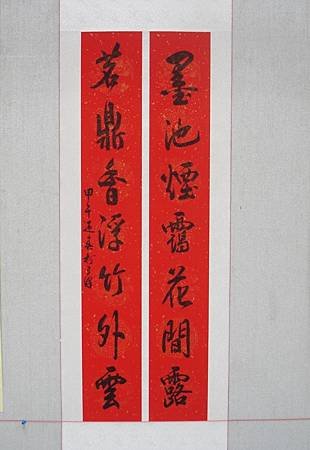 墨池煙靄花間露
茗鼎香浮竹外雲
甲午